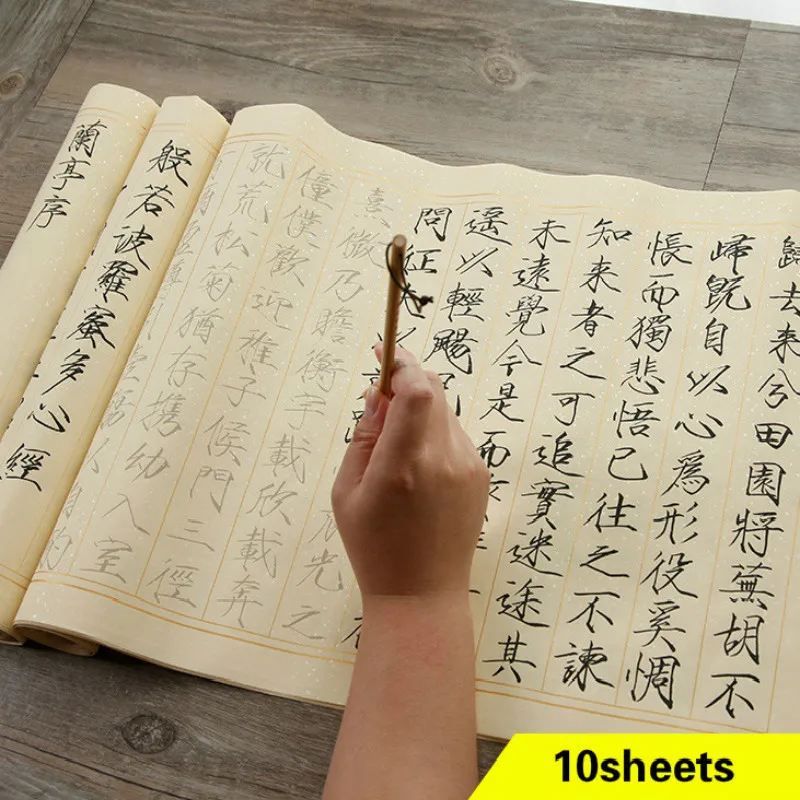 歸去来兮田園將蕪胡不
歸既自以心為形役奚惆
悵而獨悲悟已往之不諫
知来者之可追實迷途其
未遠覺今是而
遥以輕颺
問征以路光之
熹微乃瞻衡宇載欣載奔
僮僕歡迎稚子候門三徑
就荒松菊猶存携幼入室
般若波羅蜜多心經
蘭亭序
10sheets